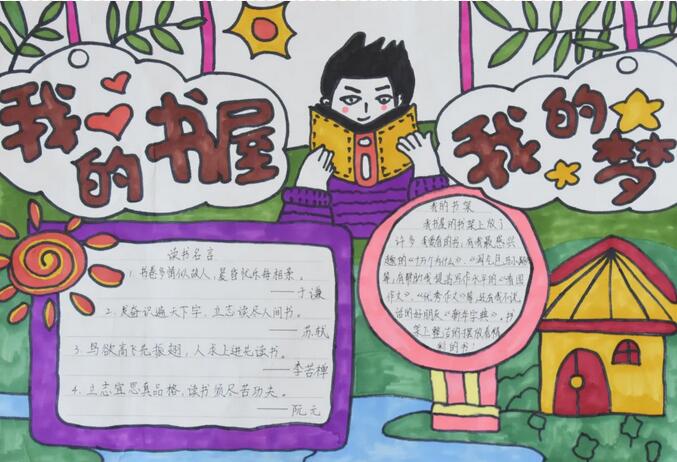 我的书屋
我的梦
读书名言
1. 书卷多情似故人，晨昏忧乐每相亲。
——于谦
2. 发奋识遍天下字，立志读尽人间书。
——苏轼
3. 鸟欲高飞先振翅，人求上进先读书。
——李若禅
4. 立志宜思真品格，读书须尽苦功夫。
——阮元
我的书架
我书屋的书架上放了
许多我爱看的书，有我最感兴
趣的《十万个为什么》、《淘气包马小跳》
等，有帮助我提高写作水平的《看图
作文》、《优秀作文》等，还有我不说
话的好朋友《新华字典》。书
架上整洁的摆放着精
彩的书！